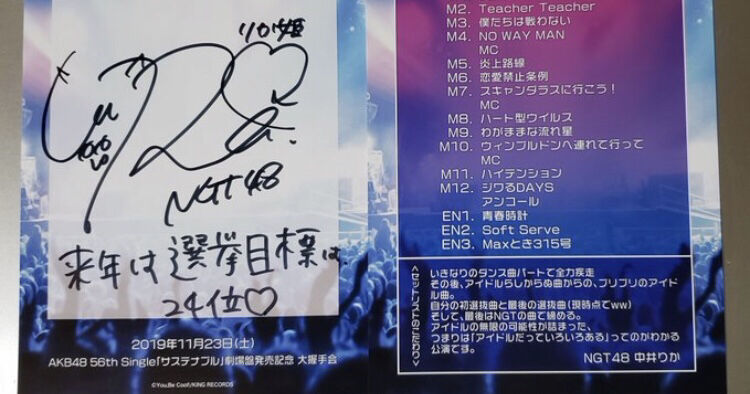 NGT48
来年は選挙目標は、
24位♡
2019年11月23日(土)
AKB48 56th Single「サステナブル」劇場盤発売記念 大握手会
©You,Be Cool!/KING RECORDS
M2. Teacher Teacher
M3. 僕たちは戦わない
M4. NO WAY MAN
MC
M5. 炎上路線
M6. 恋愛禁止条例
M7. スキャンダラスに行こう！
MC
M8. ハート型ウイルス
M9. わがままな流れ星
M10. ウィンブルドンへ連れて行って
MC
M11. ハイテンション
M12. ジワるDAYS
アンコール
EN1. 青春時計
EN2. Soft Serve
EN3. Maxとき315号
<セットリストのこだわり>
いきなりのダンス曲パートで全力疾走
その後、アイドルらしからぬ曲からの、ブリブリのアイドル曲。
自分の初選抜曲と最後の選抜曲(現時点でww)
そして、最後はNGTの曲で締める。
アイドルの無限の可能性が詰まった、
つまりは「アイドルだっていろいろいある」ってのがわかる
公演です。
NGT48 中井りか